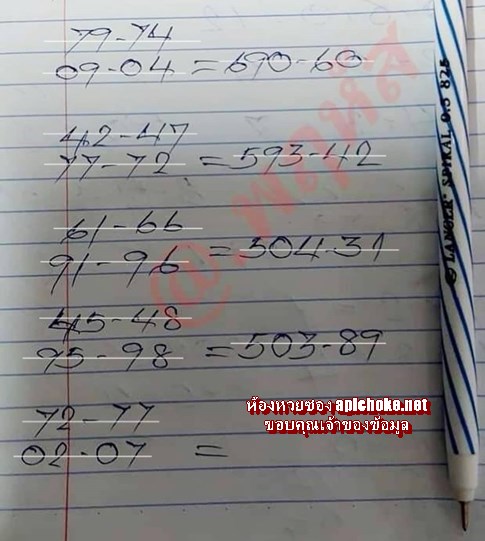 79-74
09-04 = 690-60
42-47
77-72 = 593-42
61-66
91-96 = 504-31
45-48
95-98 = 503-89
72-77
02-07 =
ห้องหวยซอง apichoke.net
ขอบคุณเจ้าของข้อมูล
@.พฤหัส
LANCER SPIRAL 0.5 825